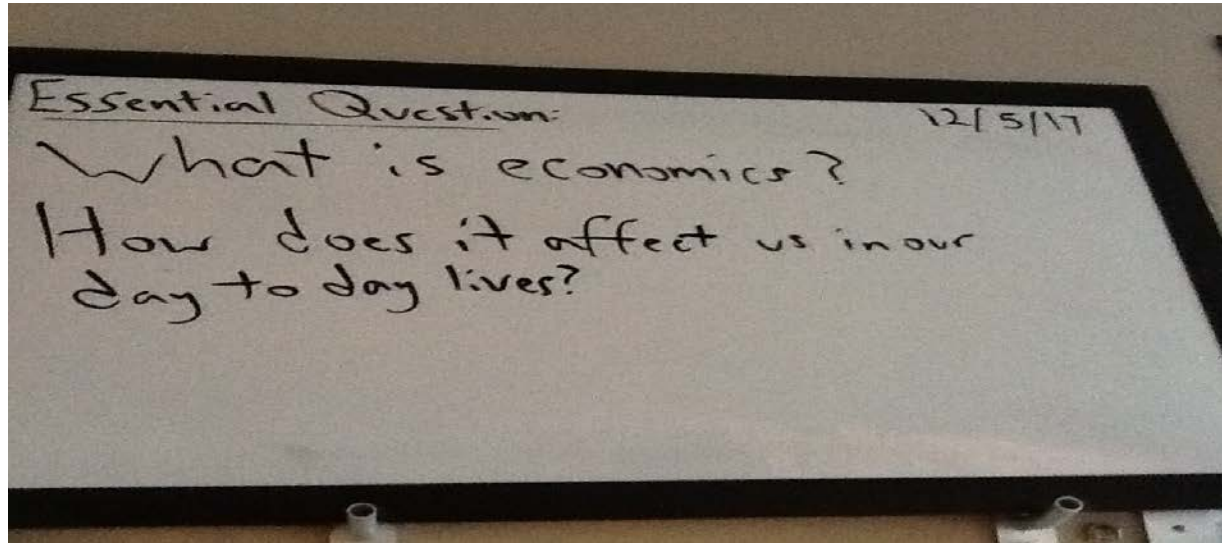 Essential Question: 12/5/17
What is economics?
How does it affect us in our
day to day lives?